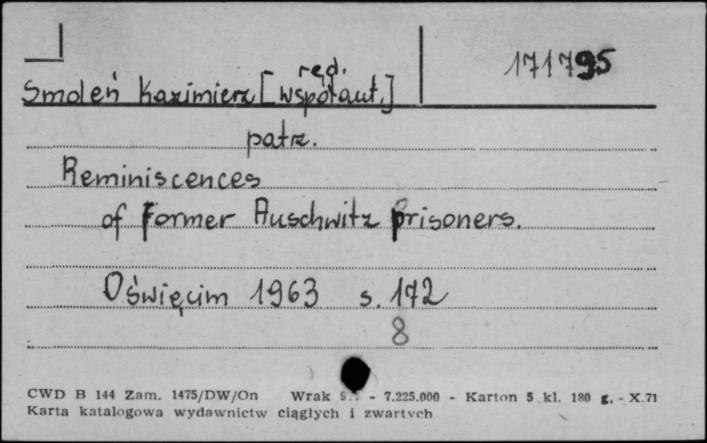 171795
red.
Smoleń Kazimierz [współaut.]
patrz.
Reminiscences
of Former Auschwitz prisoners.
Oświęcim 1963 s. 172
8
CWD B 144 Zam. 1475/DW/On Wrak - 7.225.000 - Karton 5 kl. 180 g. - X.71
Karta katalogowa wydawnictw ciągłych i zwartych